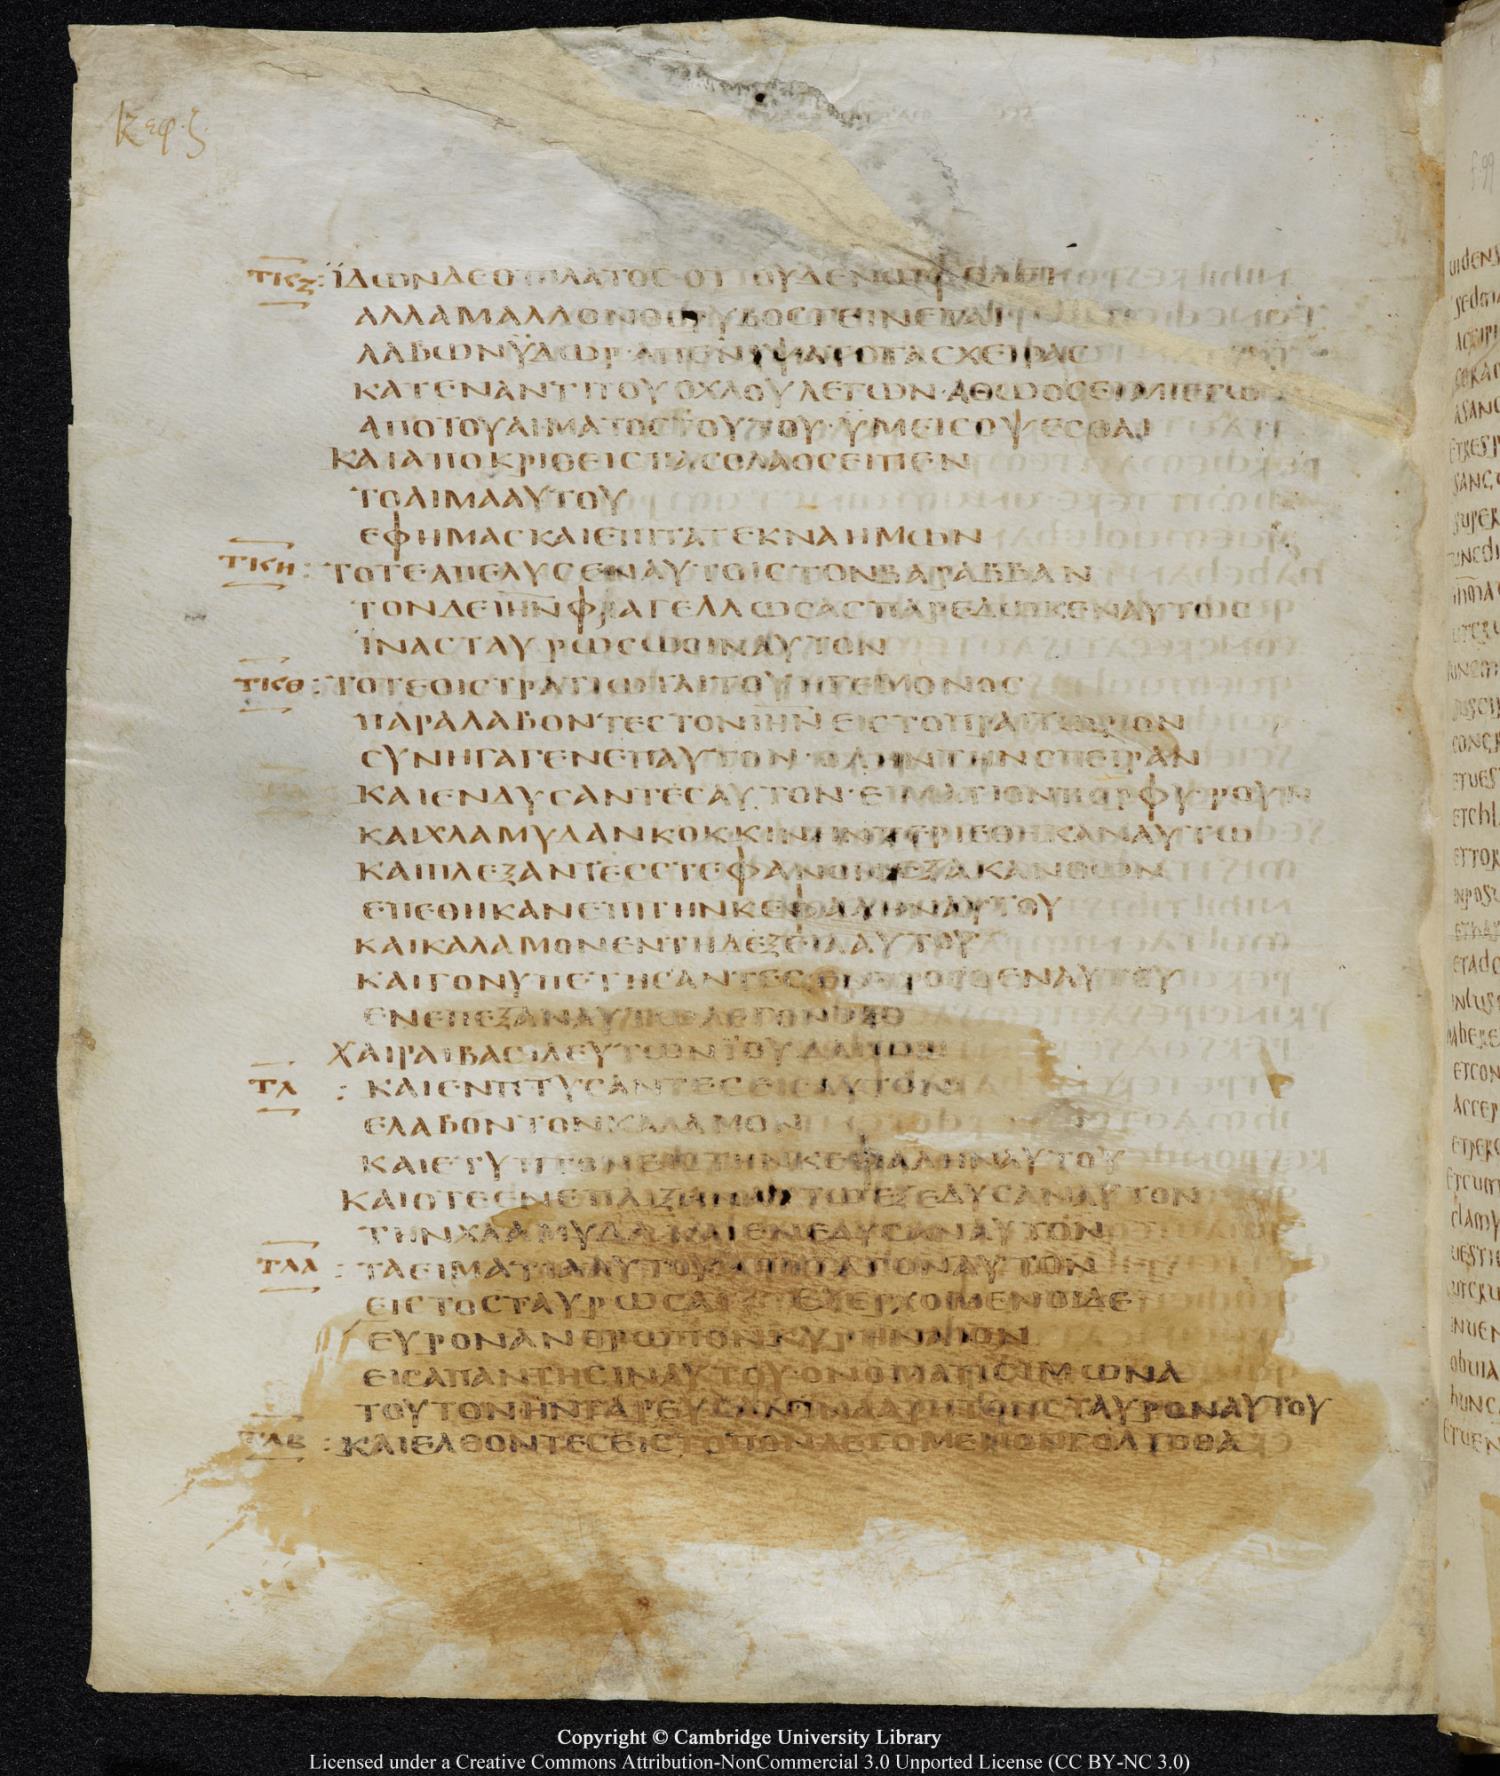 κεφ·ζ
ΤΚΖ: ΪΔΩΝΔΕΟΠΙΛΑΤΟΣ·ΟΤΙΟΥΔΕΝΩΦΕΛΕΙ
ΑΛΛΑΜΑΛΛΟΝΘΟΡΥΒΟΣΓΕΙΝΕΤΑΙ
ΛΑΒΩΝΥΔΩΡ·ΑΠΕΝΙΨΑΤΟΤΑΣΧΕΙΡΑΣ
ΚΑΤΕΝΑΝΤΙΤΟΥΟΧΛΟΥΛΕΓΩΝ·ΑΘΩΟΣΕΙΜΙΕΓΩ
ΑΠΟΤΟΥΑΙΜΑΤΟΣΤΟΥΤΟΥ·ΫΜΕΙΣΟΨΕΣΘΑΙ
ΚΑΙΑΠΟΚΡΙΘΕΙΣΠΑΣΟΛΑΟΣΕΙΠΕΝ
ΤΟΑΙΜΑΑΥΤΟΥ
ΕΦΗΜΑΣΚΑΙΕΠΙΤΑΤΕΚΝΑΗΜΩΝ
ΤΚΗ: ΤΟΤΕΑΠΕΛΥΣΕΝΑΥΤΟΙΣΤΟΝΒΑΡΑΒΒΑΝ
ΤΟΝΔΕΙΗΝΦΛΑΓΕΛΛΩΣΑΣΠΑΡΕΔΩΚΕΝΑΥΤΟΙΣ
ΪΝΑΣΤΑΥΡΩΣΩΣΙΝΑΥΤΟΝ
ΤΚΘ: ΤΟΤΕΟΙΣΤΡΑΤΙΩΤΑΙΤΟΥΗΓΕΜΟΝΟΣ
ΠΑΡΑΛΑΒΟΝΤΕΣΤΟΝΙΗΝΕΙΣΤΟΠΡΑΙΤΩΡΙΟΝ
ΣΥΝΗΓΑΓΕΝΕΠΑΥΤΟΝ·ΟΛΗΝΤΗΝΣΠΕΙΡΑΝ
ΚΑΙΕΝΔΥΣΑΝΤΕΣΑΥΤΟΝ·ΕΙΜΑΤΙΟΝΠΟΡΦΥΡΟΥΝ
ΚΑΙΧΛΑΜΥΔΑΝΚΟΚΚΙΝΗΝΠΕΡΙΕΘΗΚΑΝΑΥΤΩ
ΚΑΙΠΛΕΞΑΝΤΕΣΣΤΕΦΑΝΟΝΕΞΑΚΑΝΘΩΝ
ΕΠΕΘΗΚΑΝΕΠΙΤΗΝΚΕΦΑΛΗΝΑΥΤΟΥ
ΚΑΙΚΑΛΑΜΟΝΕΝΤΗΔΕΞΕΙΑΑΥΤΟΥ
ΚΑΙΓΟΝΥΠΕΤΗΣΑΝΤΕΣΕΝΠΡΟΣΘΕΝΑΥΤΟΥ
ΕΝΕΠΕΞΑΝΑΥΤΩΛΕΓΟΝΤΕΣ
ΧΑΙΡΑΙΒΑΣΙΛΕΥΤΩΝΪΟΥΔΑΙΩΝ
ΤΛ: ΚΑΙΕΝΠΤΥΣΑΝΤΕΣΕΙΣΑΥΤΟΝ
ΕΛΑΒΟΝΤΟΝΚΑΛΑΜΟΝ
ΚΑΙΕΤΥΠΤΟΝΕΙΣΤΗΝΚΕΦΑΛΗΝΑΥΤΟΥ
ΚΑΙΟΤΕΕΝΕΠΑΙΖΑΝΑΥΤΩΕΞΕΔΥΣΑΝΑΥΤΟΝ
ΤΗΝΧΛΑΜΥΔΑΚΑΙΕΝΕΔΥΣΑΝΑΥΤΟΝ
ΤΛΑ: ΤΑΕΙΜΑΤΙΑΑΥΤΟΥΑΠΗΓΑΓΟΝΑΥΤΟΝ
ΕΙΣΤΟΣΤΑΥΡΩΣΑΙΕΞΕΡΧΟΜΕΝΟΙΔΕ
ΕΥΡΟΝΑΝΘΡΩΠΟΝΚΥΡΗΝΑΙΟΝ
ΕΙΣΑΠΑΝΤΗΣΙΝΑΥΤΟΥ·ΟΝΟΜΑΤΙΣΙΜΩΝΑ
ΤΟΥΤΟΝΗΝΓΑΡΕΥΣΑΝΙΝΑΑΡΗΤΟΝΣΤΑΥΡΟΝΑΥΤΟΥ
ΤΛΒ: ΚΑΙΕΛΘΟΝΤΕΣΕΙΣΤΟΠΟΝΛΕΓΟΜΕΝΟΝΓΟΛΓΟΘΑ
Copyright © Cambridge University Library
Licensed under a Creative Commons Attribution-NonCommercial 3.0 Unported License (CC BY-NC 3.0)